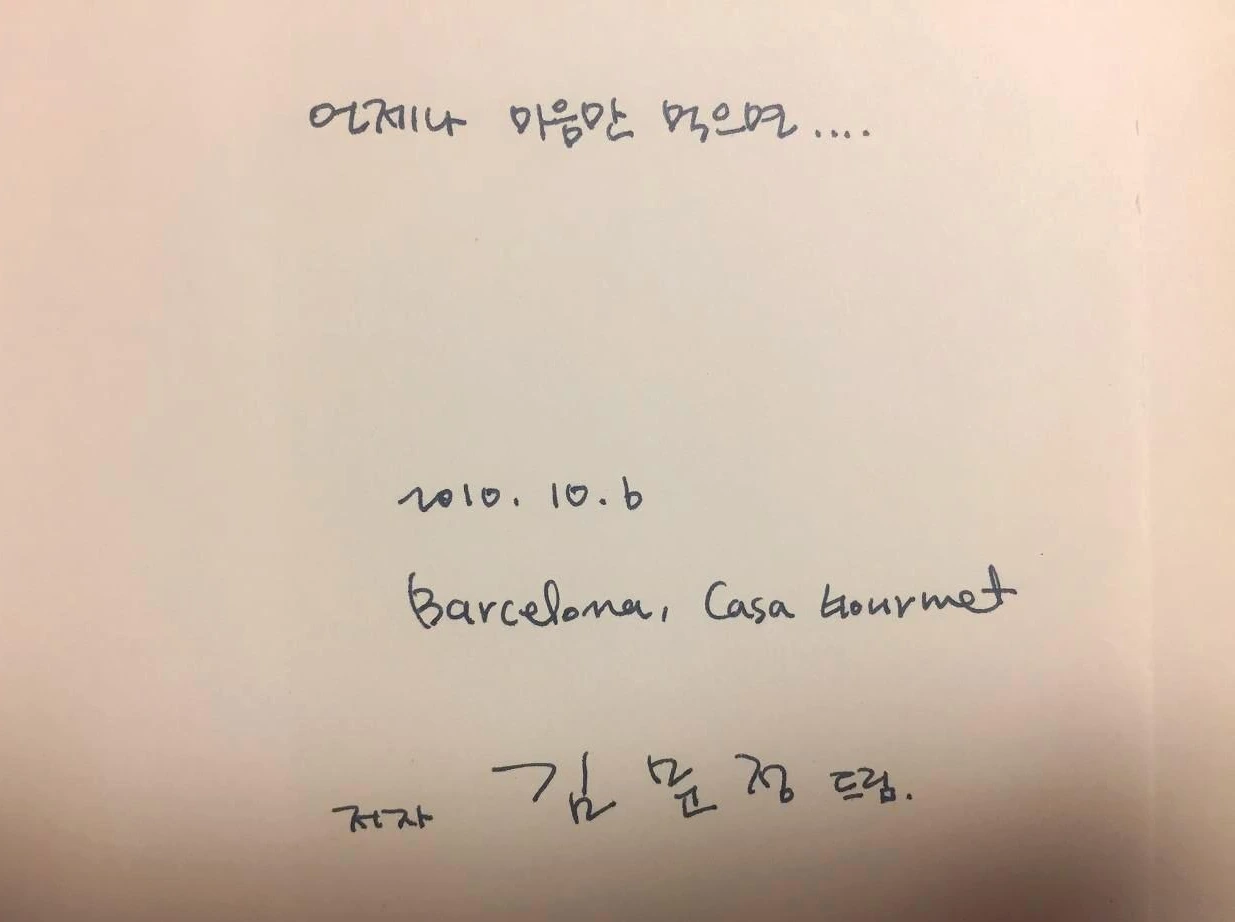 언제나 마음만 먹으면....
2010. 10. 6
Barcelona, Casa Gourmet
저자 김문정 드림.